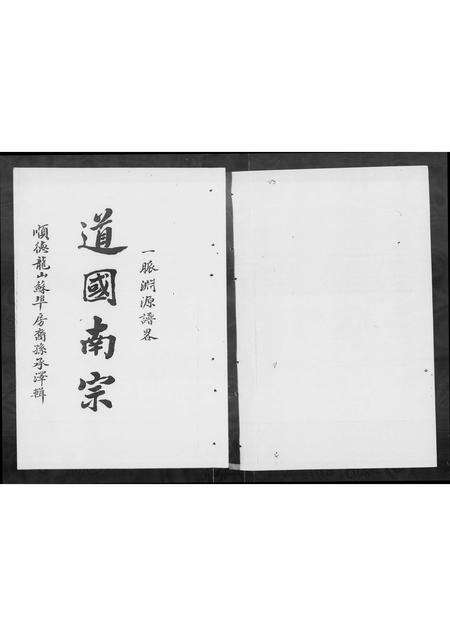 一脈淵源譜畧
道國南宗
順德龍山蘇埠房裔孫承澤輯